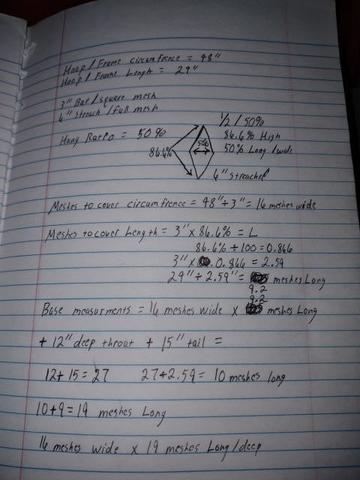 Hoop / Frame circumfrence = 48"
Hoop / Frame Length = 29"
3" Bar / square mesh
6" Streach / full mesh
Hang Ratio = 50%
1/2 / 50%
86.6% High
50% Long / wide
86.6%
50%
6" streached
Meshes to cover circumfrence = 48" ÷ 3" = 16 meshes wide
Meshes to cover Length = 3" x 86.6% = L
86.6% ÷ 100 = 0.866
3" x 0.866 = 2.59
29" ÷ 2.59" = meshes Long
9.2
Base measurments = 16 meshes wide x 9.2 meshes Long
+ 12" deep throut + 15" tail =
12 + 15 = 27 27 ÷ 2.59 = 10 meshes long
10 + 9 = 19 meshes Long
16 meshes wide x 19 meshes Long / deep